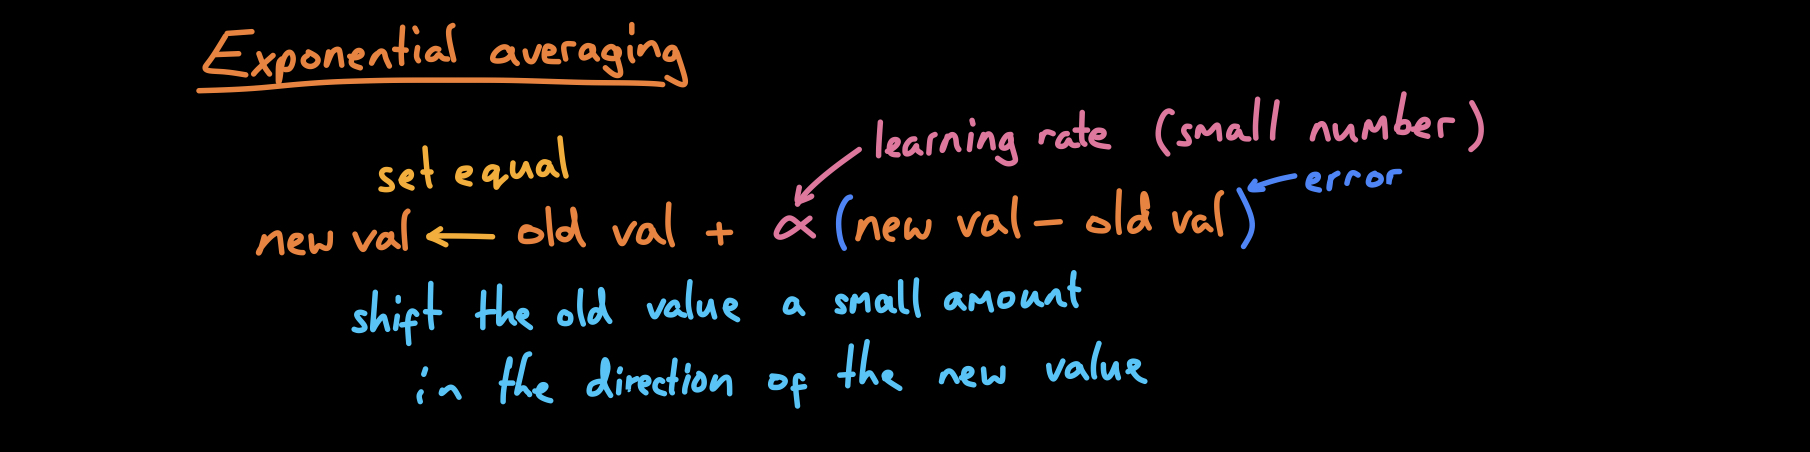 Exponential averaging
learning rate (small number)
set equal
error
new val ← old val + α (new val - old val)
shift the old value a small amount
in the direction of the new value